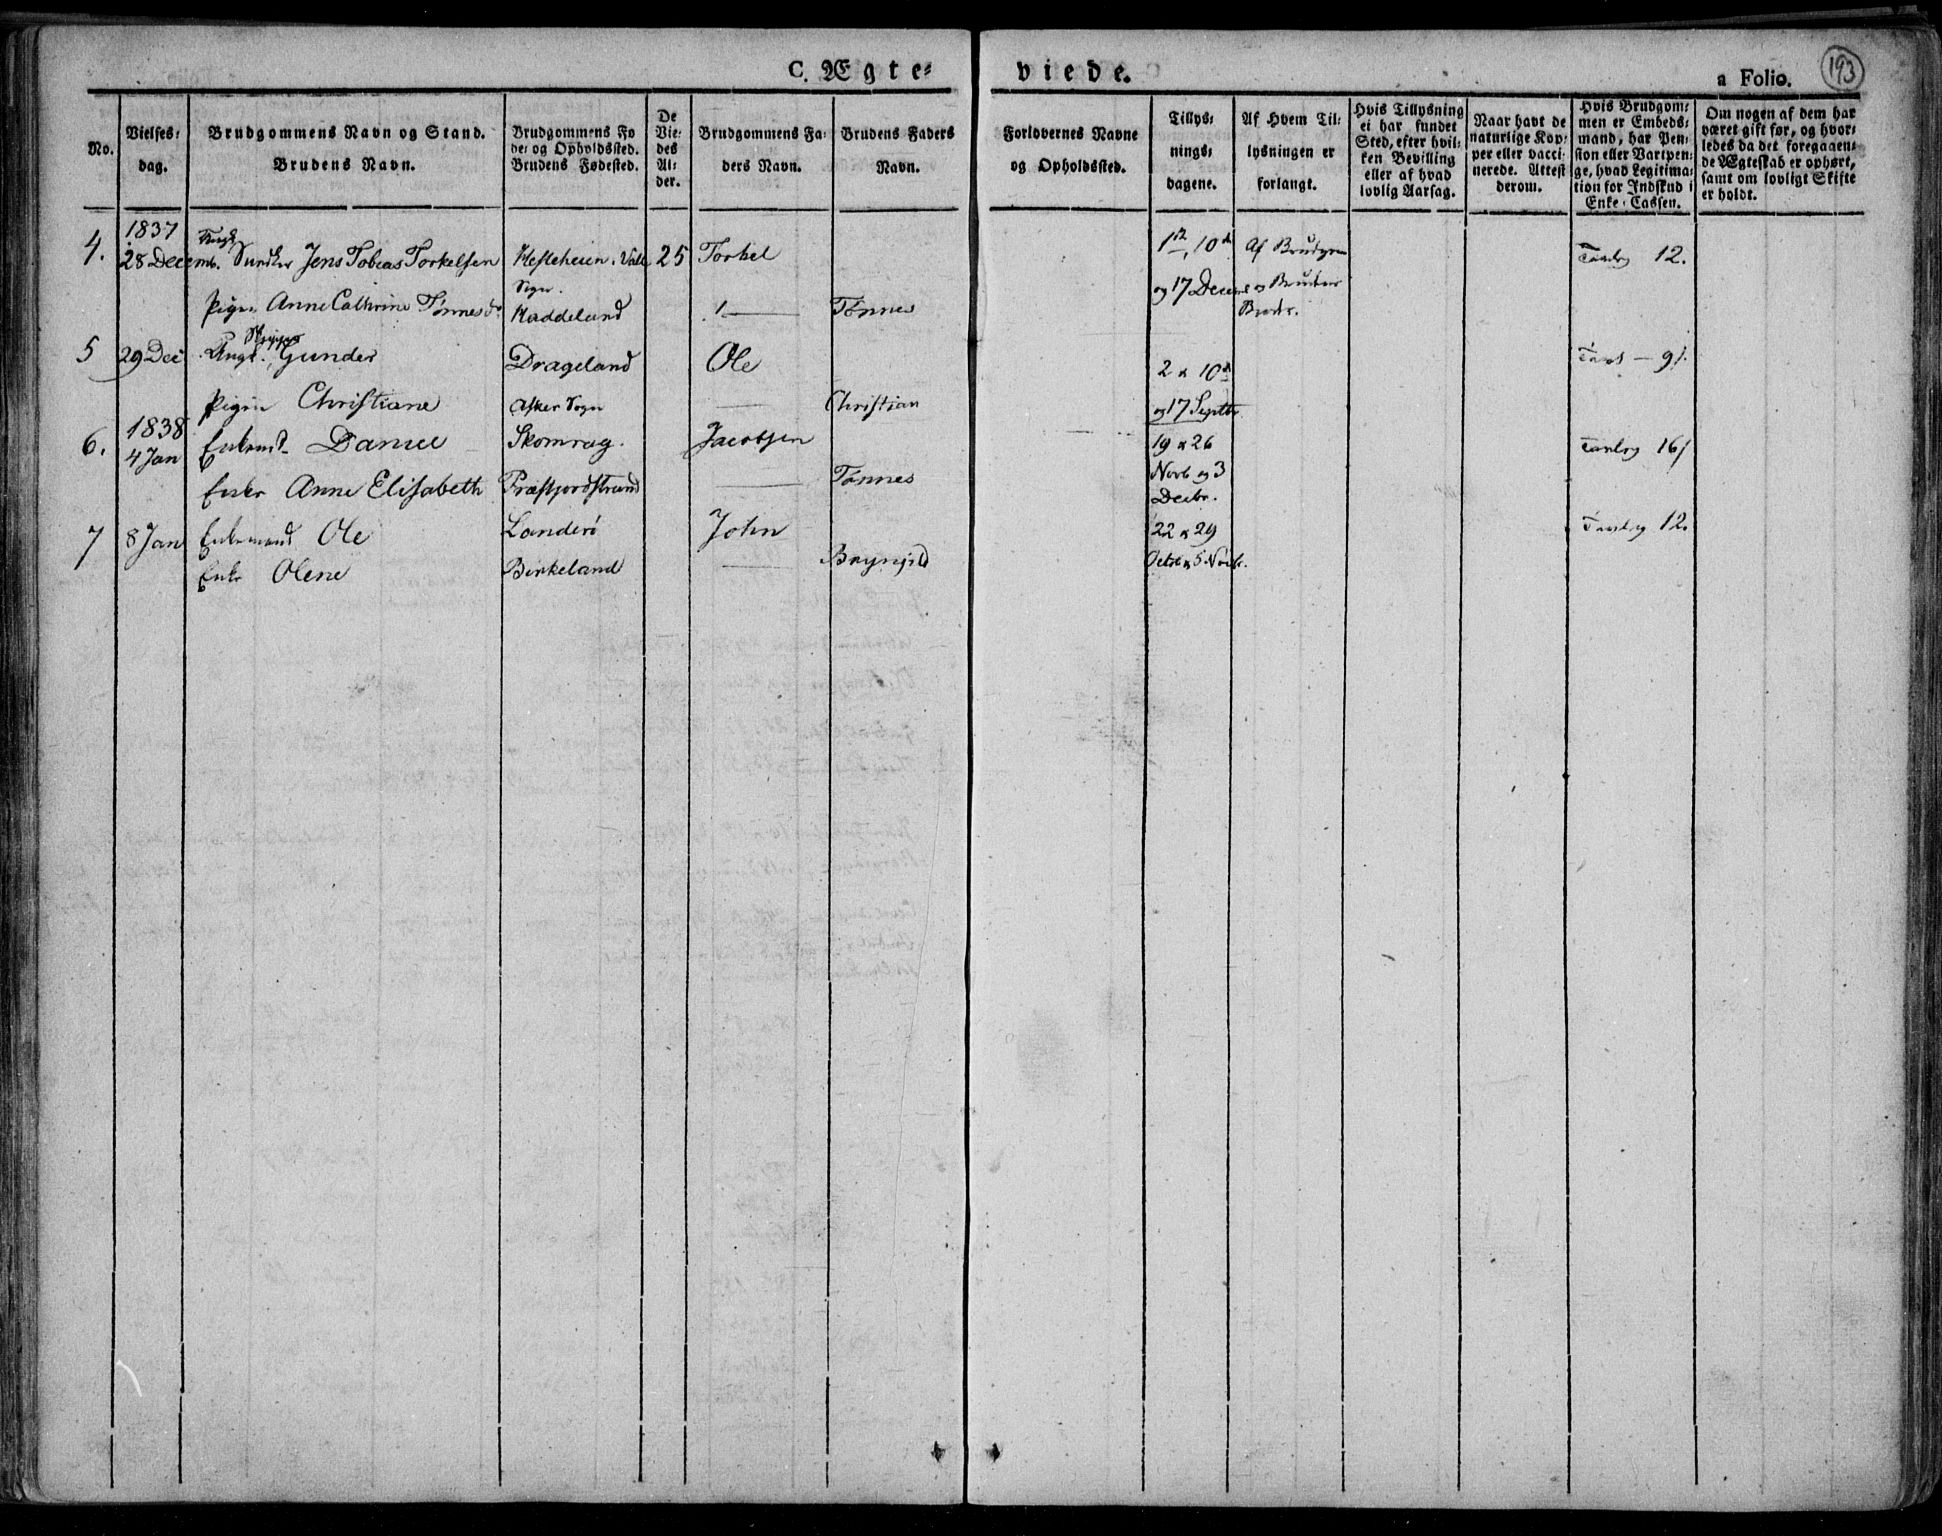 C. Ægte-
viede.
a Folio.
193
No.
Vielses-
dag.
Brudgommens Navn og Stand.
Brudens Navn.
Brudgommens Fø
de- og Opholdssted.
Brudens Fødested.
De
Vie-
des
Al-
der.
Brudgommens Fa-
ders Navn.
Brudens Faders
Navn.
Forlovernes Navne
og Opholdssted.
Tillys-
nings-
dagene.
Af Hvem Til-
lysningen er
forlangt.
Hvis Tillysning
ei har fundet
Sted, efter hvil-
ken Bevilling
eller af hvad
lovlig Aarsag.
Naar havt de
naturlige Kop-
per eller vacci-
nerede. Attest
derom.
Hvis Brudgom-
men er Embeds-
mand, har Pen-
sion eller Vartpen-
ge, hvad Legitima-
tion for Indskud i
Enke-Cassen.
Om nogen af dem har
været gift før, og hvor-
ledes da det foregaaen-
de Ægteskab er ophørt,
samt om lovligt Skifte
er holdt.
1837
4. 28 Decemb. Jens Tobias Torkelsen 25 Torkel 1ste, 10de Af Brudgom 12.
Sogn.
Pigen Anne Cathrine Tønnesd. Haddeland Tønnes og 17 Decemb og Brudens
Broder.
5 29 Dec Ungk. Skipper Gunder Drageland Ole 2 & 10de 91
Pigen Christiane Asker Sogn Christian og 17 Septbr.
1838
6. 4 Jan Enkemd. Daniel Skomrag. Jacobsen 19 & 26 161
Enke Anne Elisabeth Præstfjordstrand Tønnes Novb og 3
Decbr.
7 8 Jan Enkemand Ole Landerö John 22 & 29 12.
Enke Olene Birkeland Brynjild Octob & 5 Novbr.